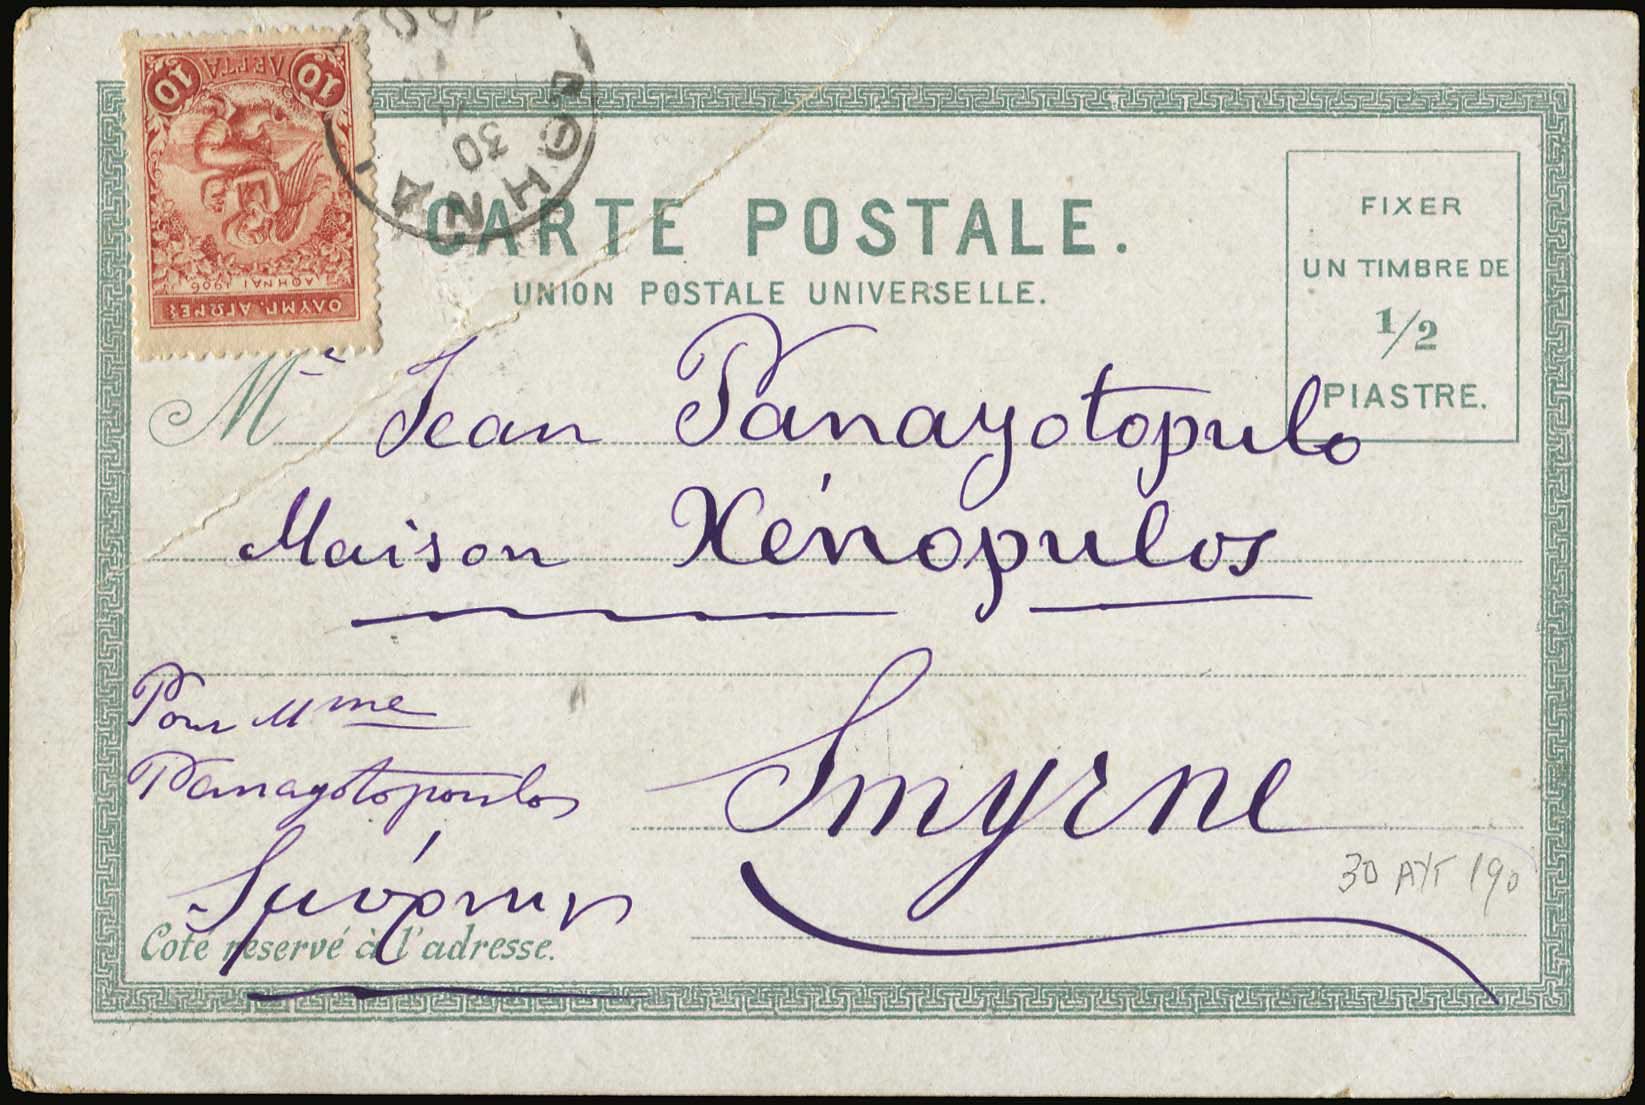 10 ΛΕΠΤΑ 10
ΑΘΗΝΑΙ 1906
ΟΛΥΜΠ. ΑΓΩΝΕΣ
ΑΘΗΝΑΙ
30
CARTE POSTALE.
UNION POSTALE UNIVERSELLE.
FIXER
UN TIMBRE DE
1/2
PIASTRE.
Mr Jean Panayotopulo
Maison Xénopulos
Pour Mme
Panayotopoulos
Σμύρνην
Smyrne
30 ΑΥΓ 190
Coté réservé à l'adresse.